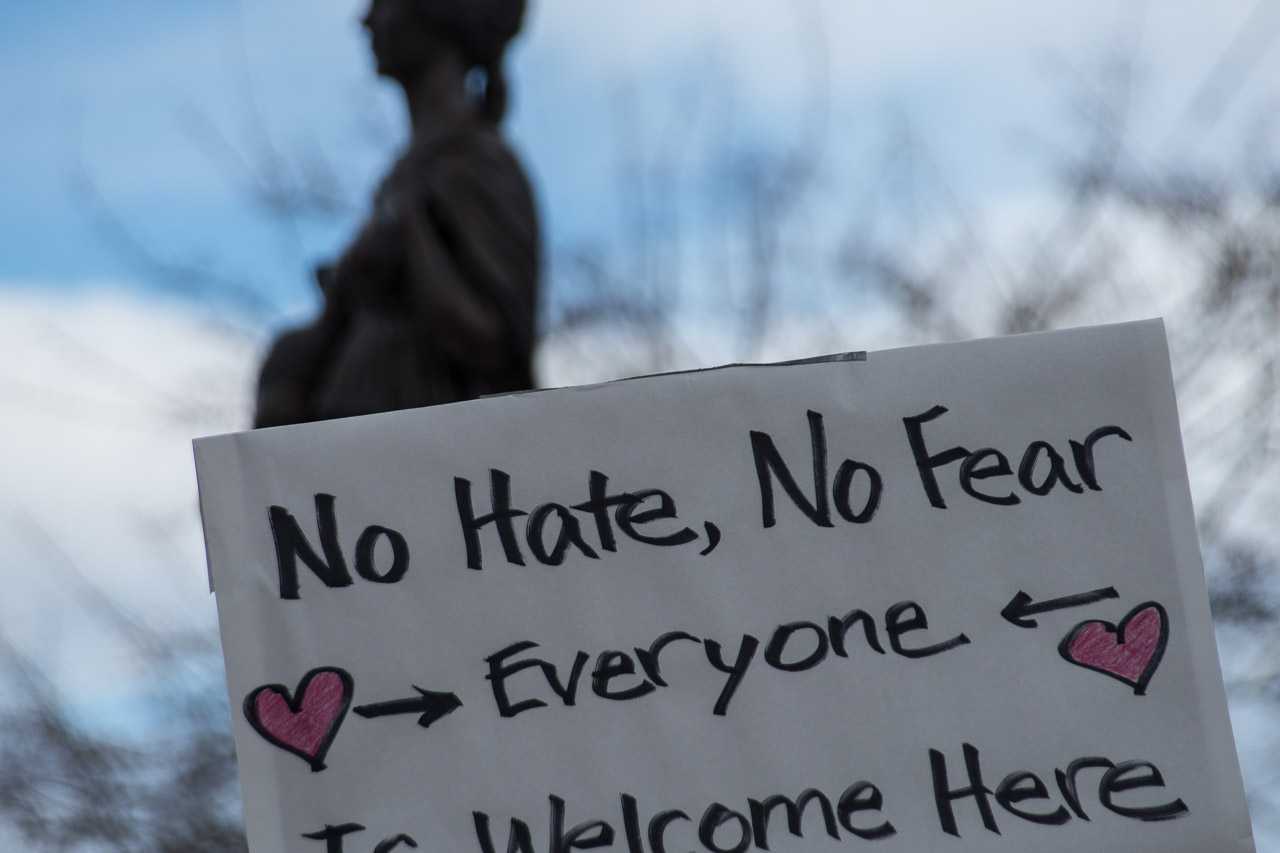 No Hate, No Fear
→ Everyone ←
Is Welcome Here